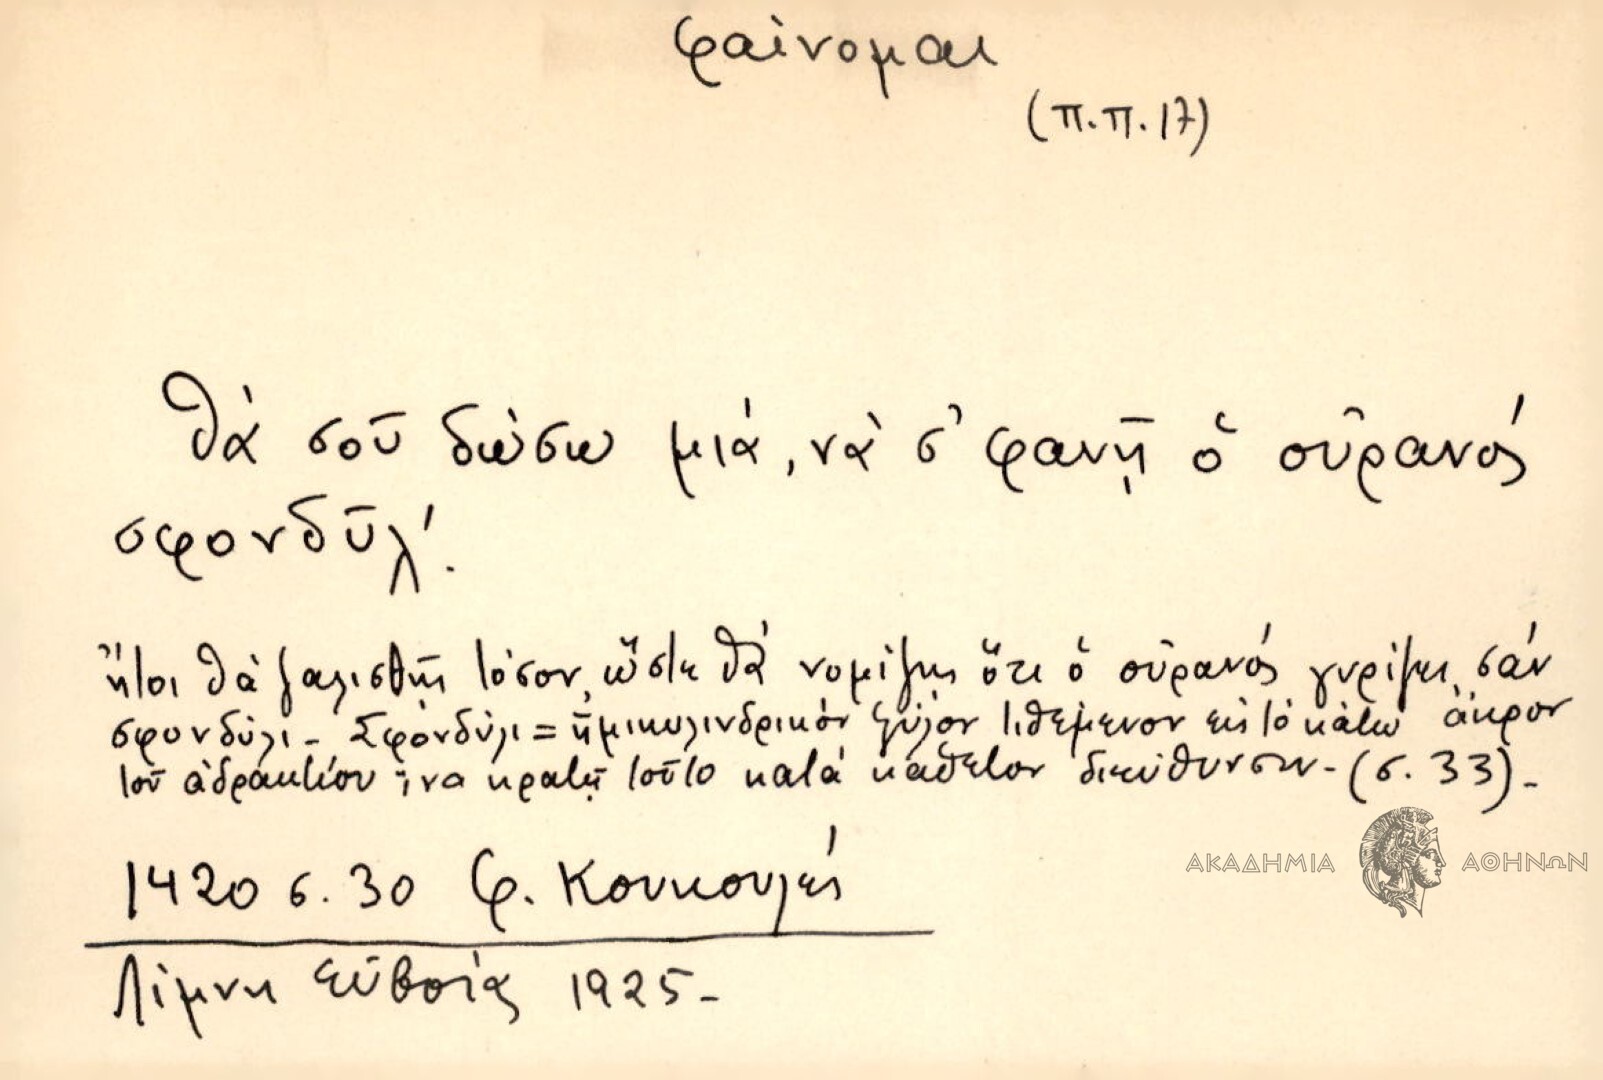 φαίνομαι
(Π.Π. 17)
Θὰ σοῦ δώσω μιά, νὰ σ' φανῇ ὁ οὐρανός
σφονδύλ'.
ἤτοι θὰ ζαλισθῇς τόσον, ὥστε θὰ νομίζῃς ὅτι ὁ οὐρανός γυρίζει σάν
σφονδύλι - Σφονδύλι = ἡμικυλινδρικόν ξύλον τιθέμενον εἰς τὸ κάτω ἄκρον
τοῦ ἀδρακτίου ἵνα κρατῇ τοῦτο κατά κάθετον διεύθυνσιν - (σ. 33) -
1420 σ. 30 Φ. Κουκουλές
Λίμνη Εὐβοίας 1925 -
ΑΚΑΔΗΜΙΑ ΑΘΗΝΩΝ